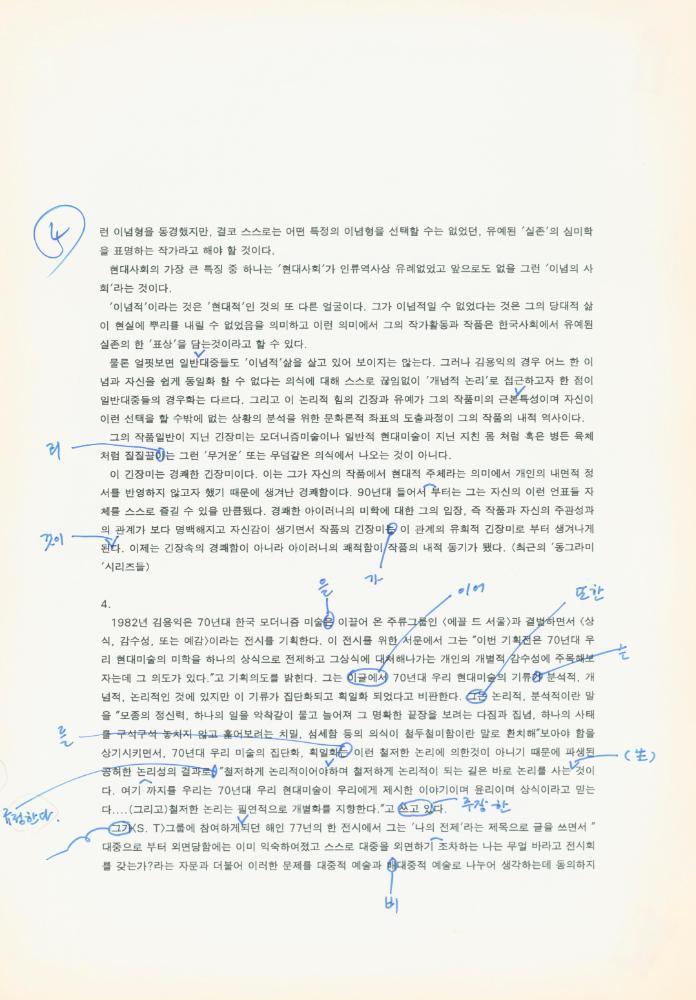 4
런 이념형을 동경했지만, 결코 스스로는 어떤 특정의 이념형을 선택할 수는 없었던, 유예된 '실존'의 심미학
을 표명하는 작가라고 해야 할 것이다.
현대사회의 가장 큰 특징 중 하나는 '현대사회'가 인류역사상 유례없었고 앞으로도 없을 그런 '이념의 사
회'라는 것이다.
'이념적'이라는 것은 '현대적'인 것의 또 다른 얼굴이다. 그가 이념적일 수 없었다는 것은 그의 당대적 삶
이 현실에 뿌리를 내릴 수 없었음을 의미하고 이런 의미에서 그의 작가활동과 작품은 한국사회에서 유예된
실존의 한 '표상'을 담는것이라고 할 수 있다.
물론 얼핏보면 일반대중들도 '이념적'삶을 살고 있어 보이지는 않는다. 그러나 김용익의 경우 어느 한 이
념과 자신을 쉽게 동일화 할 수 없다는 의식에 대해 스스로 끊임없이 '개념적 논리'로 접근하고자 한 점이
일반대중들의 경우화는 다르다. 그리고 이 논리적 힘의 긴장과 유예가 그의 작품미의 근본특성이며 자신이
이런 선택을 할 수밖에 없는 상황의 분석을 위한 문화론적 좌표의 도출과정이 그의 작품의 내적 역사이다.
그의 작품일반이 지닌 긴장미는 모더니즘미술이나 일반적 현대미술이 지닌 지친 몸 처럼 혹은 병든 육체
처럼 질질끌이는 그런 '무거운' 또는 무덤같은 의식에서 나오는 것이 아니다.
리
이 긴장미는 경쾌한 긴장미이다. 이는 그가 자신의 작품에서 현대적 주체라는 의미에서 개인의 내면적 정
서를 반영하지 않고자 했기 때문에 생겨난 경쾌함이다. 90년대 들어서 부터는 그는 자신의 이런 언표들 자
체를 스스로 즐길 수 있을 만큼됐다. 경쾌한 아이러니의 미학에 대한 그의 입장, 즉 작품과 자신의 주관성과
의 관계가 보다 명백해지고 자신감이 생기면서 작품의 긴장미는 이 관계의 유희적 긴장미로 부터 생겨나게
것이
된다. 이제는 긴장속의 경쾌함이 아니라 아이러니의 쾌적함이 작품의 내적 동기가 됐다. (최근의 '동그라미
'시리즈들)
가
을
이어
또한
4.
1982년 김용익은 70년대 한국 모더니즘 미술은 이끌어 온 주류그룹인 〈에꼴 드 서울〉과 결별하면서 〈상
식, 감수성, 또는 예감〉이라는 전시를 기획한다. 이 전시를 위한 서문에서 그는 "이번 기획전은 70년대 우
리 현대미술의 미학을 하나의 상식으로 전제하고 그상식에 대처해나가는 개인의 개별적 감수성에 주목해보
자는데 그 의도가 있다."고 기획의도를 밝힌다. 그는 이글에서 70년대 우리 현대미술의 기류가 분석적, 개
는
념적, 논리적인 것에 있지만 이 기류가 집단화되고 획일화 되었다고 비판한다. 그는 논리적, 분석적이란 말
을 "모종의 정신력, 하나의 일을 악착같이 물고 늘어져 그 명확한 끝장을 보려는 다짐과 집념, 하나의 사태
를 구석구석 놓치지 않고 훑어보려는 치밀, 섬세함 등의 의식이 철두철미함이란 말로 환치해"보아야 함을
를
상기시키면서, 70년대 우리 미술의 집단화, 획일화는 이런 철저한 논리에 의한것이 아니기 때문에 파생된
(生)
공허한 논리성의 결과로 "철저하게 논리적이어야하며 철저하게 논리적이 되는 길은 바로 논리를 사는 것이
다. 여기 까지를 우리는 70년대 우리 현대미술이 우리에게 제시한 이야기이며 윤리이며 상식이라고 믿는
다....(그리고)철저한 논리는 필연적으로 개별화를 지향한다."고 쓰고 있다.
주장한
그가〈S. T〉그룹에 참여하게되던 해인 77년의 한 전시에서 그는 '나의 전제'라는 제목으로 글을 쓰면서 "
대중으로 부터 외면당함에는 이미 익숙하여졌고 스스로 대중을 외면하기 조차하는 나는 무얼 바라고 전시회
를 갖는가?라는 자문과 더불어 이러한 문제를 대중적 예술과 대중적 예술로 나누어 생각하는데 동의하지
비